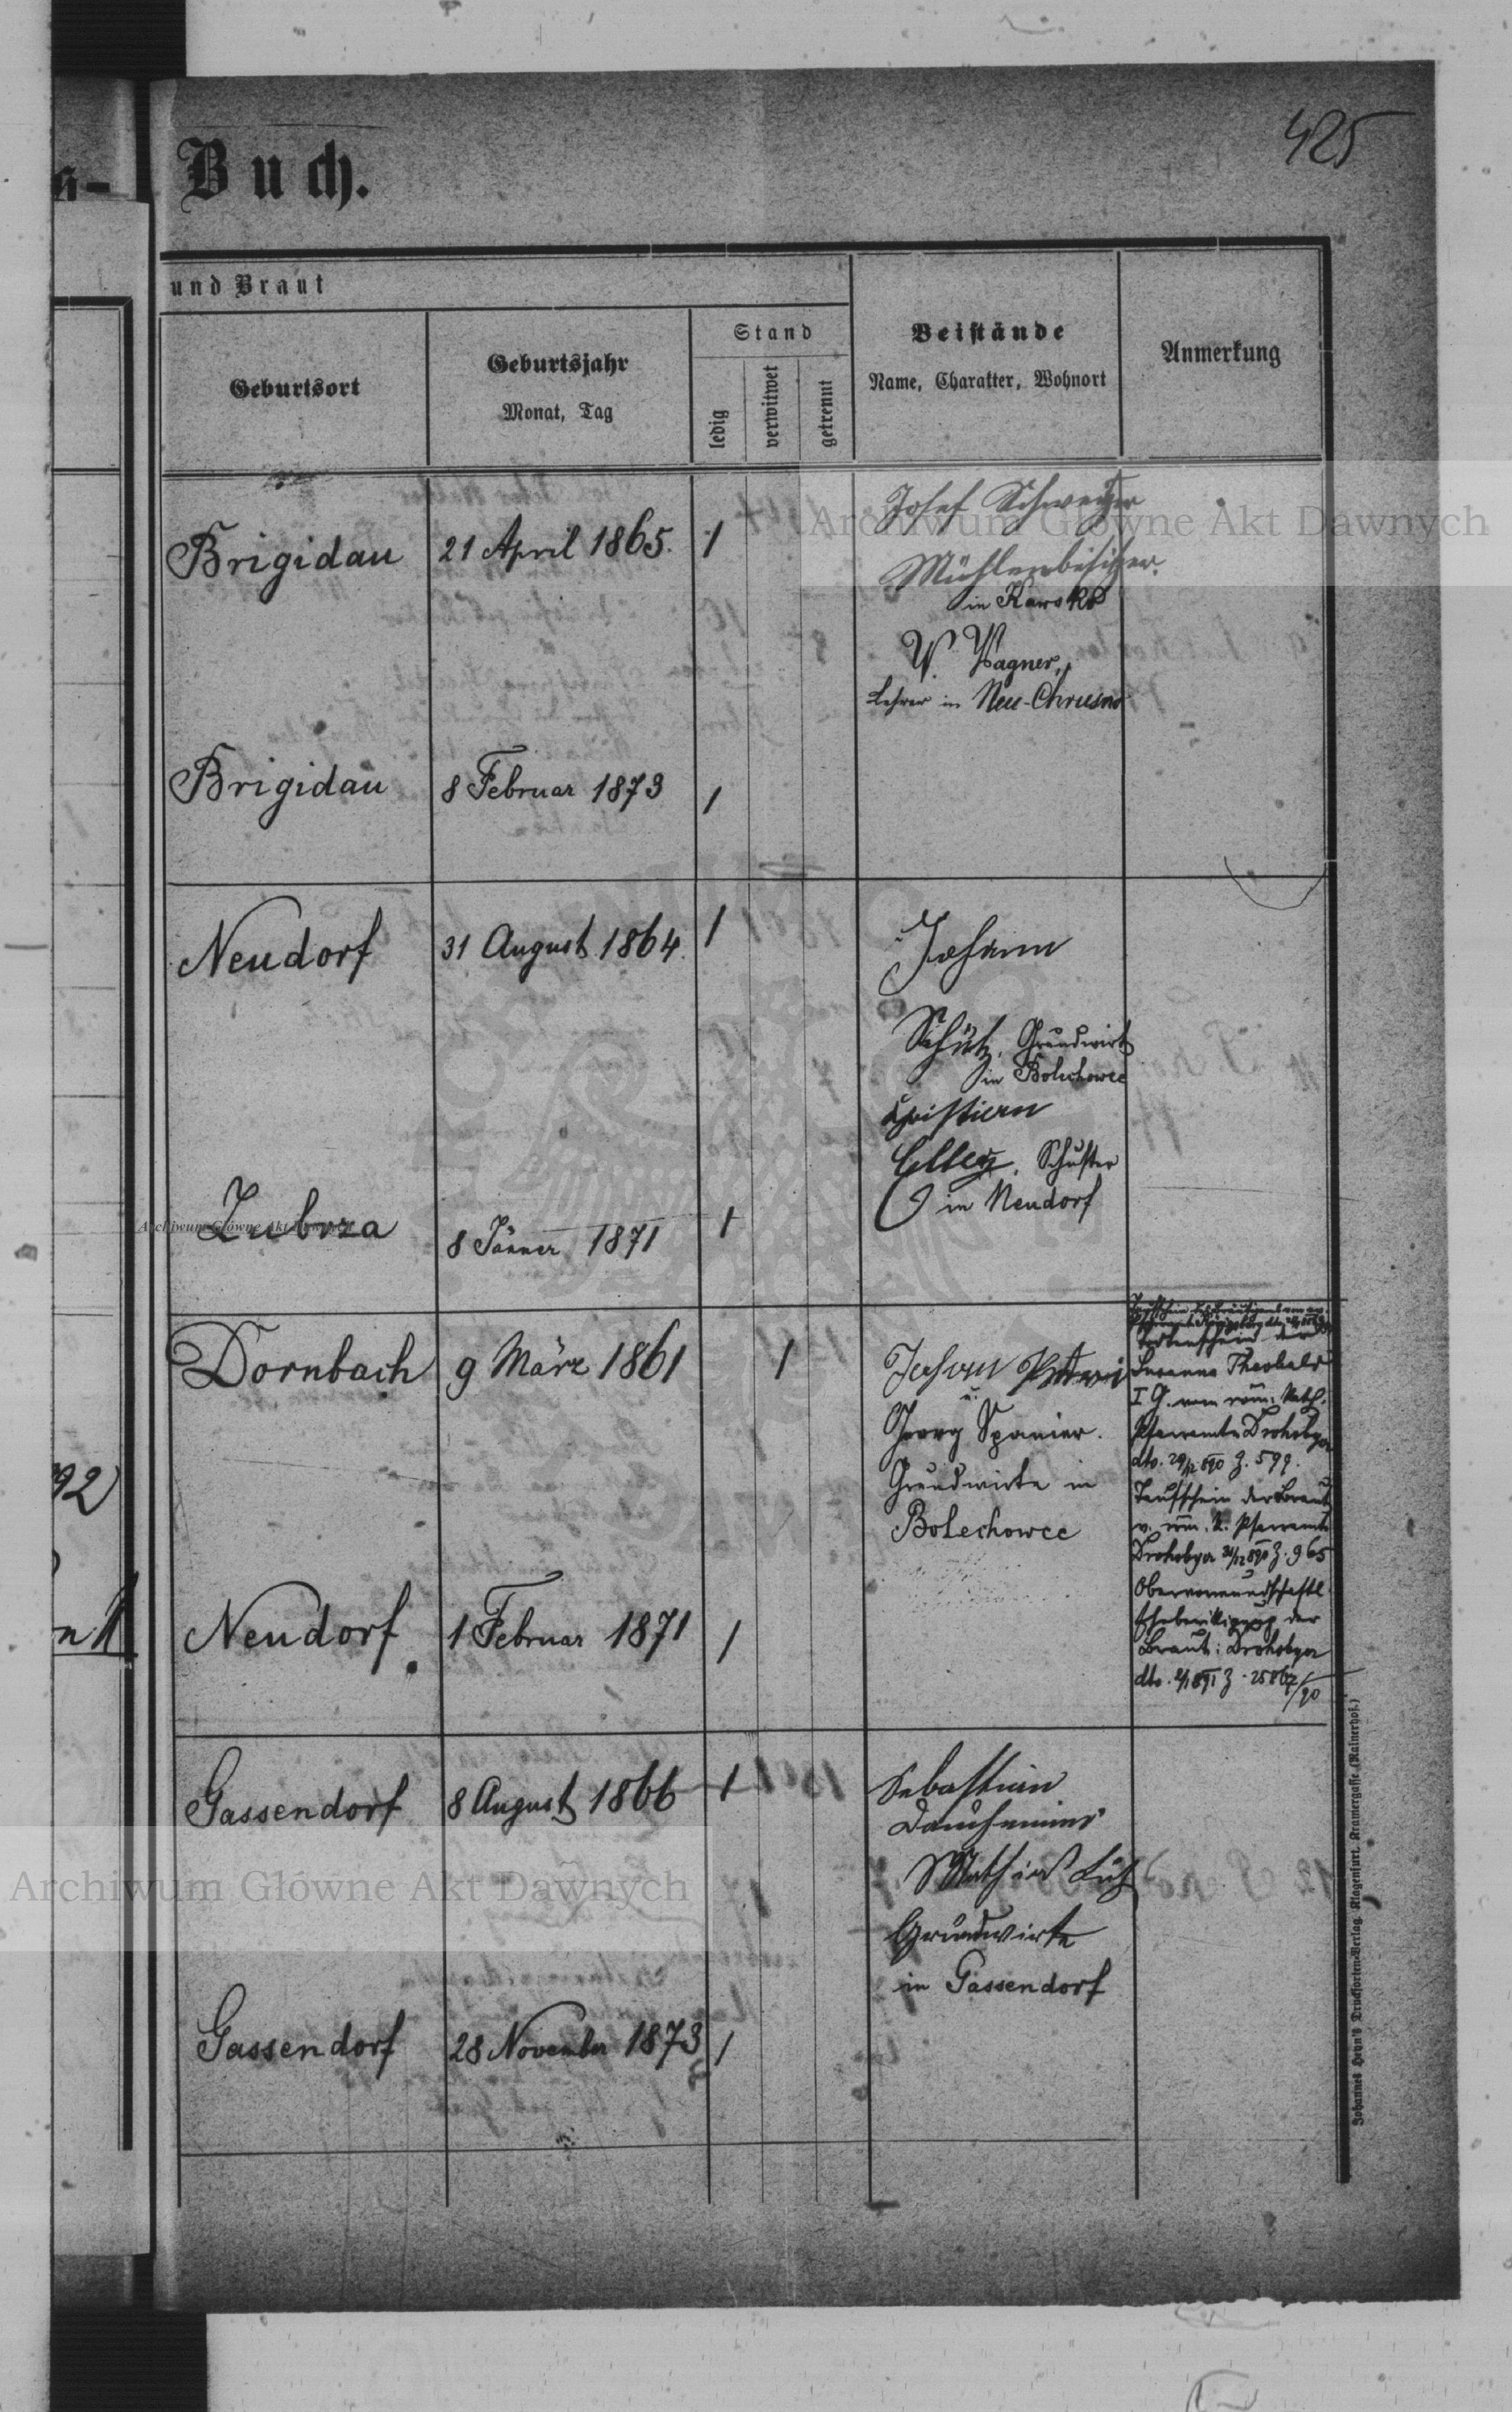 425
Buch.
und Braut
Geburtsort
Geburtsjahr
Monat, Tag
Stand
ledig
verwitwet
getrennt
Beistände
Name, Charakter, Wohnort
Anmerkung
Brigidau
21 April 1865.
1
Josef Schweitzer
Mühlenbesitzer
in Kawsko
W. Wagner,
Lehrer in Neu-Chrusno
Brigidau
8 Februar 1873
1
Neudorf
31 August 1864.
1
Johann
Schütz, Grundwirt
in Bolechowce
Christian
Schuster
in Neudorf
Zubrza
8 Jänner 1871
1
Dornbach
9 März 1861
1
Johann
u.
Georg Spanier.
Grundwirte in
Bolechowce
Totenschein der
Susanna Theobald
I G. vom röm. Kath.
Pfarramte Drohobycz
dto. 29/12 890 Z. 599.
Taufschein der Braut
v. röm. k. Pfarramte
Drohobycz 890 Z. 965
Obervormundschaftl.
Ehebewilligung der
Braut: Drohobycz
dto. 891 Z. 25867/90
Neudorf.
1 Februar 1871
1
Gassendorf
8 August 1866
1
Sebastian
Mathias
Grundwirte
in Gassendorf
Gassendorf
28 November 1873
1
92
Johannes Heyn's Drucksorten-Verlag, Klagenfurt, Kramergasse (Rainerhof.)
Archiwum Główne Akt Dawnych
Archiwum Główne Akt Dawnych
Archiwum Główne Akt Dawnych